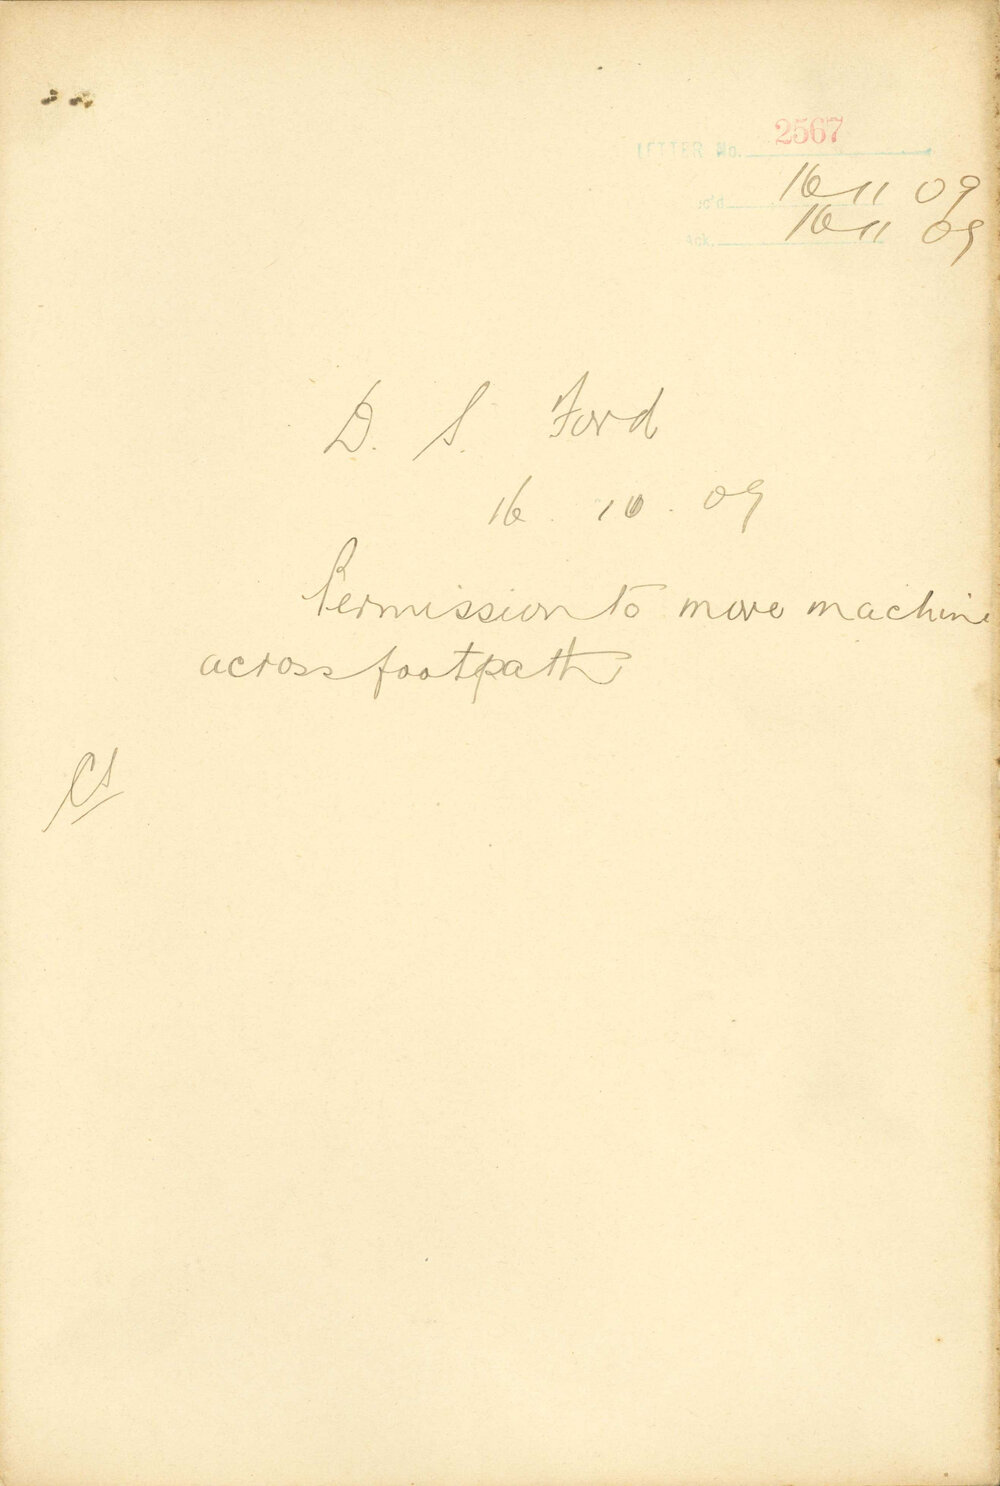 LETTER No. 2567
Rc'd 16 11 09
Ack. 16 11 09
D. S. Ford
16. 10. 09
Permission to move machine
across footpath